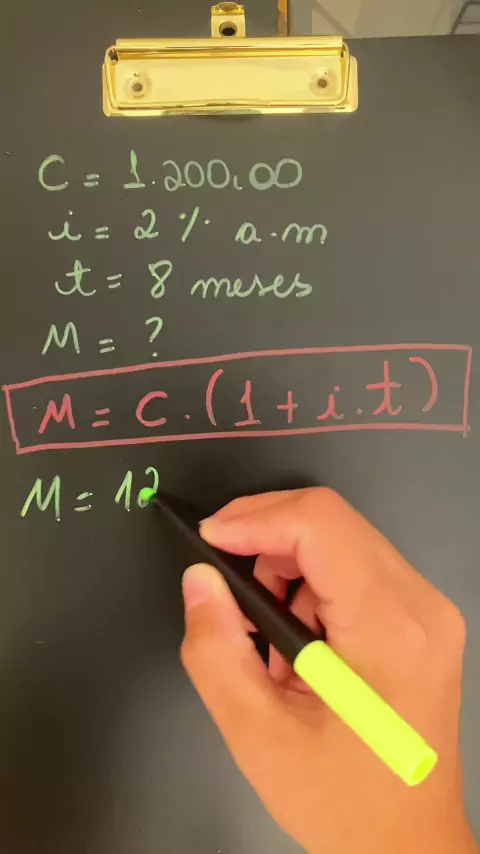 C = 1.200,00
i = 2% a.m
t = 8 meses
M = ?
M = C.(1 + i.t)
M = 12